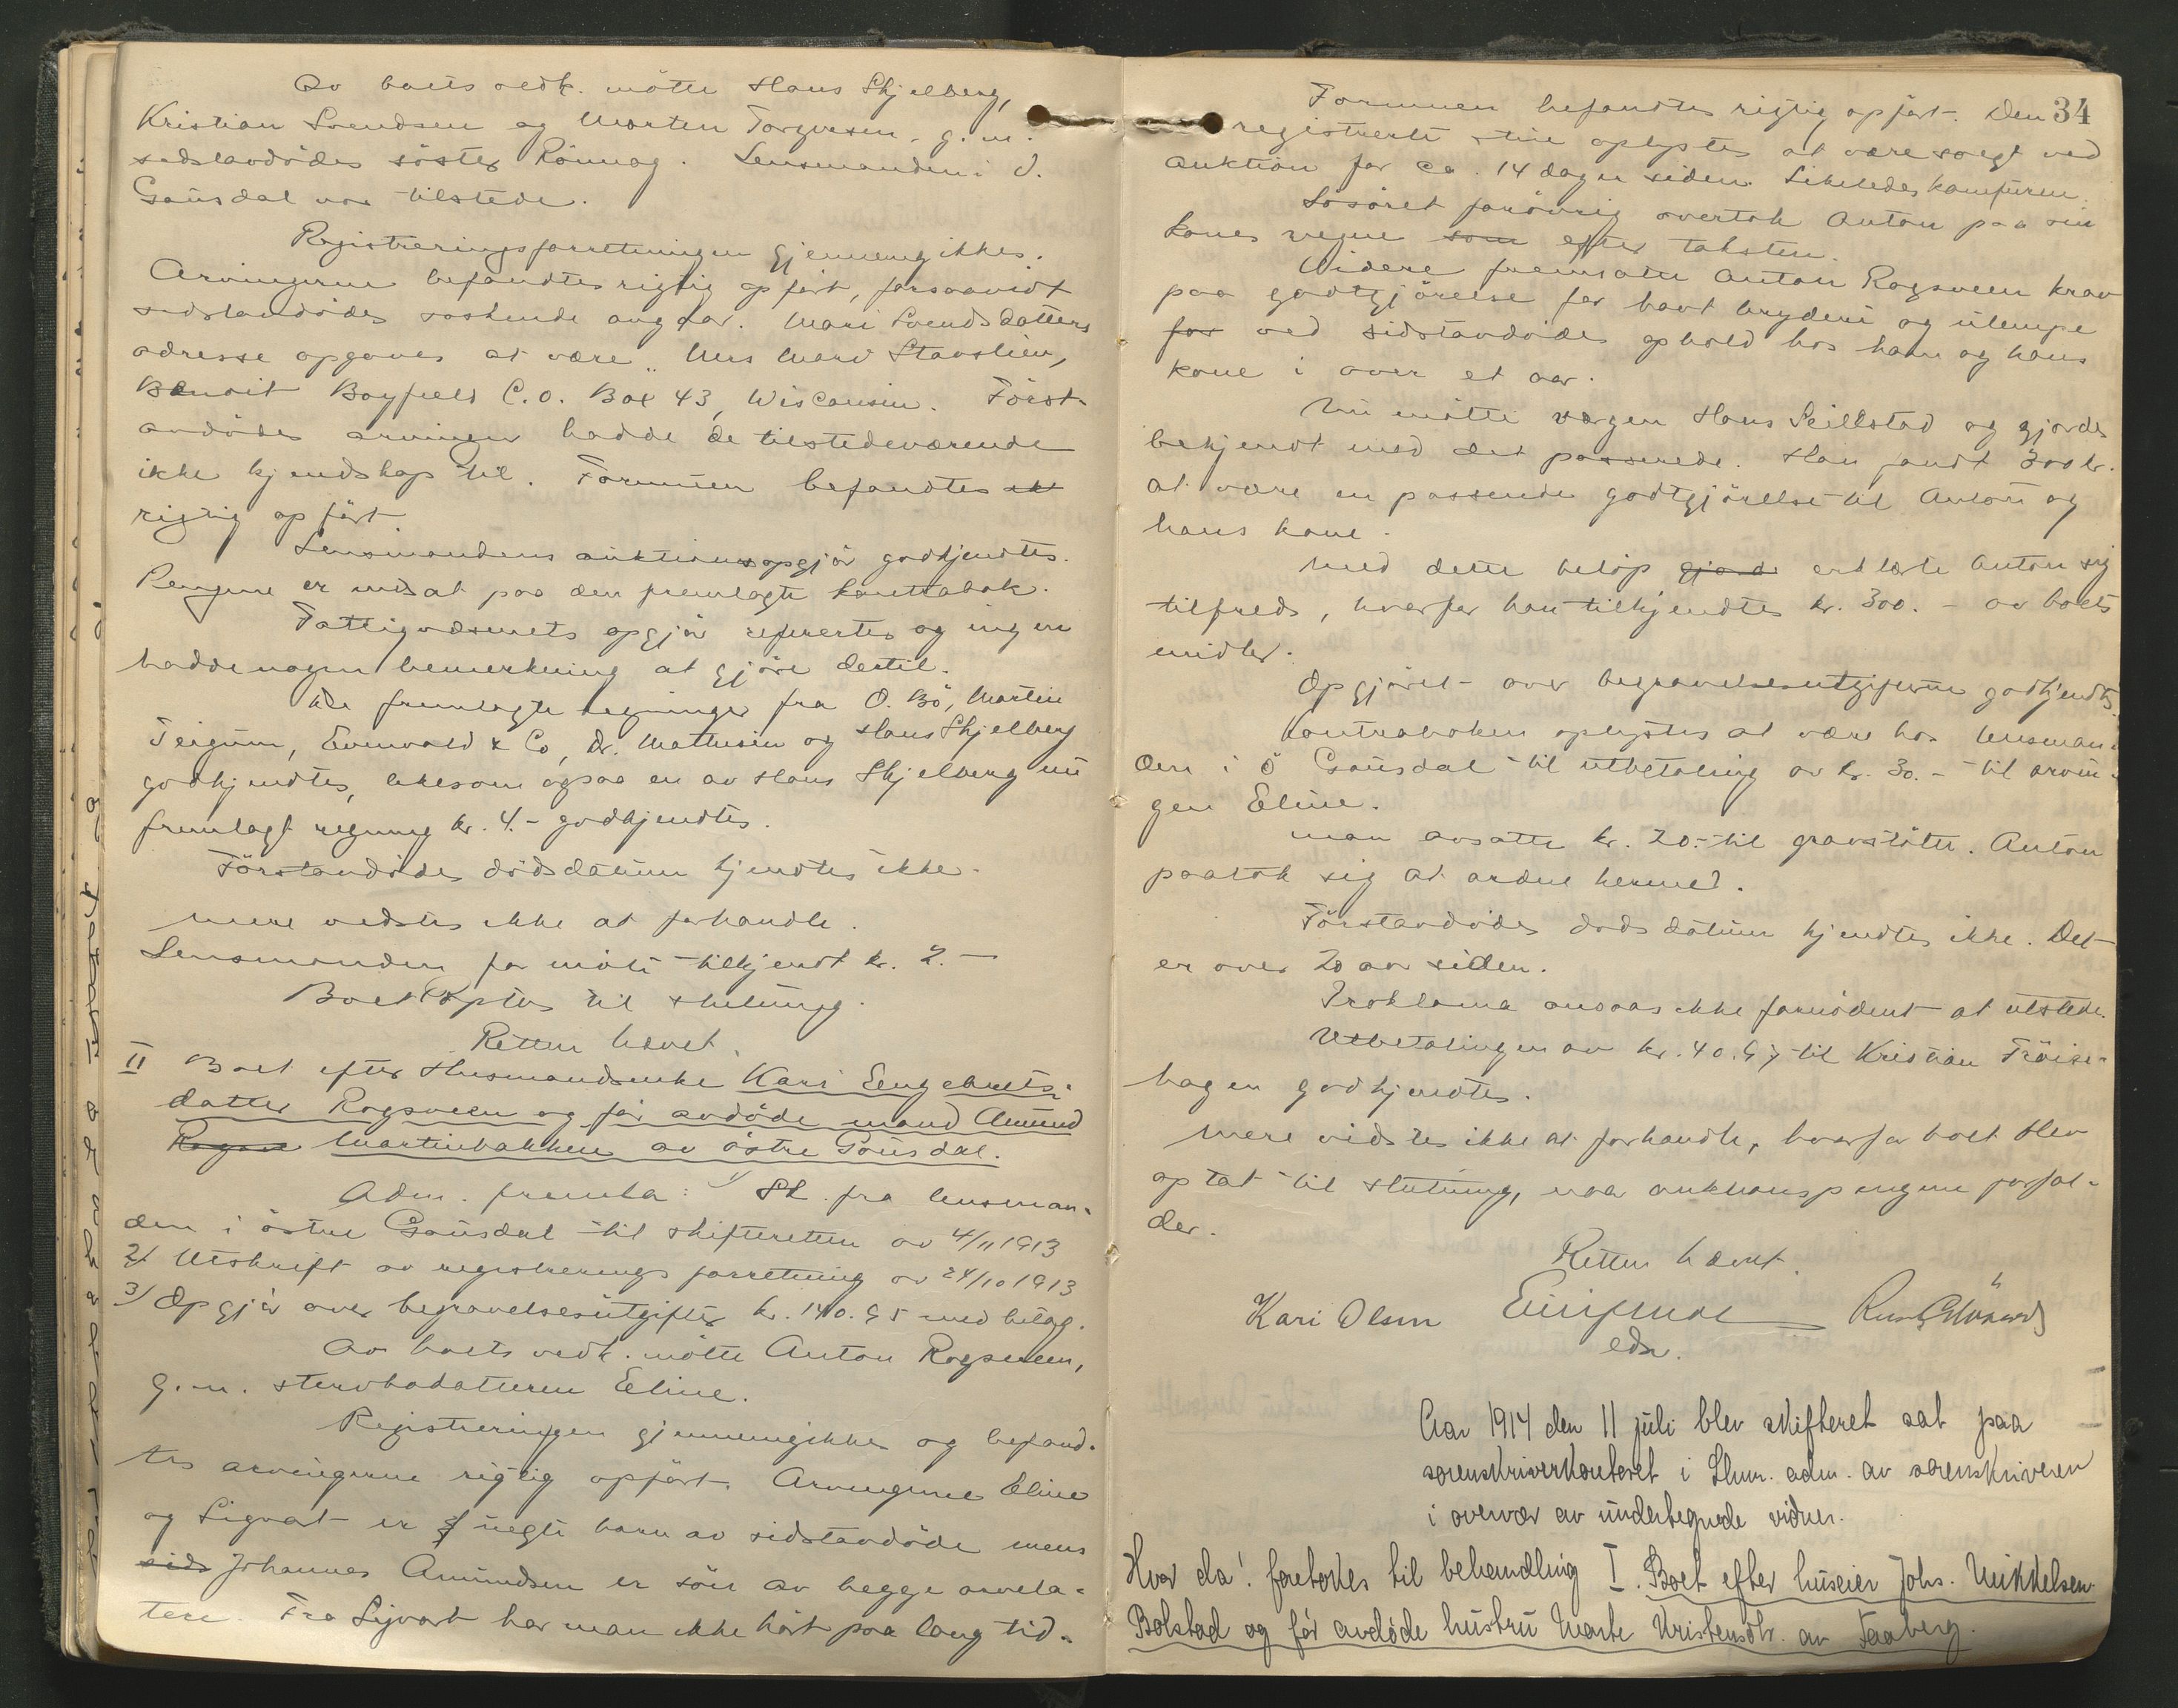 Av boets vedk. mötte Hans Skjelberg,
Kristian Svendsen og Morten Torgersen, g. m.
sidstavdödes söster Rönnog. Lensmanden i Ö.
Gausdal var tilstede.
Registreringsforretningen gjennemgikkes.
Arvingerne befandtes rigtig opfört, forsaavidt
sidstavdödes söskende angaar. Mari Svendsdatters
adresse opgaves at være "Mrs Mari Stavslien,
Benoit Bayfield C.O. Box 43, Wisconsin. Först-
avdödes arvinger hadde de tilstedeværende
ikke kjendskap til. Formuen befandtes
rigtig opfört.
Lensmandens auktionsopgjör godkjendtes.
Pengene er indsat paa den fremlagte kontrabok.
Fattigvæsenets opgjör refertes og ingen
hadde nogen bemerkning at gjöre dertil.
De fremlagte regninger fra O. Bö, Martin
Teigum, Evenvold & Co, Dr. Mathesin og Hans Skjelberg
godkjendtes, likesom ogsaa en av Hans Skjelberg nu
fremlagt regning kr. 4.- godkjendtes.
Förstavdödes dödsdatum kjendtes ikke.
Mere vidstes ikke at forhandle.
Lensmanden for möte tilkjendt kr. 2.-
Boet optas til slutning.
Retten hævet.
II Boet efter Husmandsenke Kari Engebrets-
datter Rogsveen og för avdöde mand Amund
Rogsve Martinbakken av östre Gausdal.
Adm. fremla: 1) Sk. fra lensman-
den i östre Gausdal til skifteretten av 4/11 1913
2) Utskrift av registreringsforretning av 24/10 1913
3) Opgjör over begravelsesutgifter kr. 140.95 med bilag.
Av boets vedk. mötte Anton Rogsveen,
g. m. stervbodatteren Eline.
Registreringen gjennemgikkes og befand-
tes arvingerne rigtig opfört. Arvingerne Eline
og Sigvart er uegte barn av sidstavdöde mens
sids Johannes Amundsen er sön av begge arvela-
tere. Fra Sigvart har man ikke hört paa lang tid.
34
Formuen befandtes rigtig opfört. Den
registrerte stue oplystes at være solgt ved
auktion for ca. 14 dager siden. Likeledes komfuren.
Lösöret forövrig overtok Anton paa sin
kones vegne som efter taksten.
Videre fremsatte Anton Rogsveen krav
paa godtgjörelse for havt bryderi og ulempe
for ved sidstavdödes ophold hos ham og hans
kone i over et aar.
Nu mötte vergen Hans Seillstad og gjordes
bekjendt med det passerede. Han fandt 300 kr.
at være en passende godtgjörelse til Anton og
hans kone.
Med dette belöp gjorde erklærte Anton sig
tilfreds, hvorfor han tilkjendtes kr. 300.- av boets
midler.
Opgjöret over begravelsesutgifterne godkjendtes.
Kontraboken oplystes at være hos lensman-
den i ö Gausdal til utbetaling av kr. 30.- til arvin-
gen Eline.
Man avsatte kr. 20.- til gravstötte. Anton
paatok sig at ordne hermed.
Förstavdödes döds datum kjendtes ikke. Det
er over 20 aar siden.
Proklama ansaas ikke fornödent at utstede.
Utbetalingen av kr. 40.97 til Kristian Fröise-
hagen godkjendtes.
Mere vidstes ikke at forhandle, hvorfor boet blev
optat til slutning, naar auktionspengene forfal-
der.
Retten hævet.
Kari Olsen
edsv.
Aar 1914 den 11 juli blev skifteret sat paa
sorenskriverkontoret i Lhmr. adm. av sorenskriveren
i overvær av undertegnede vidner.
Hvor da! foretokes til behandling I. Boet efter huseier Johs. Mikkelsen
Bolstad og för avdöde hustru Marte Kristensdtr. av Faaberg.